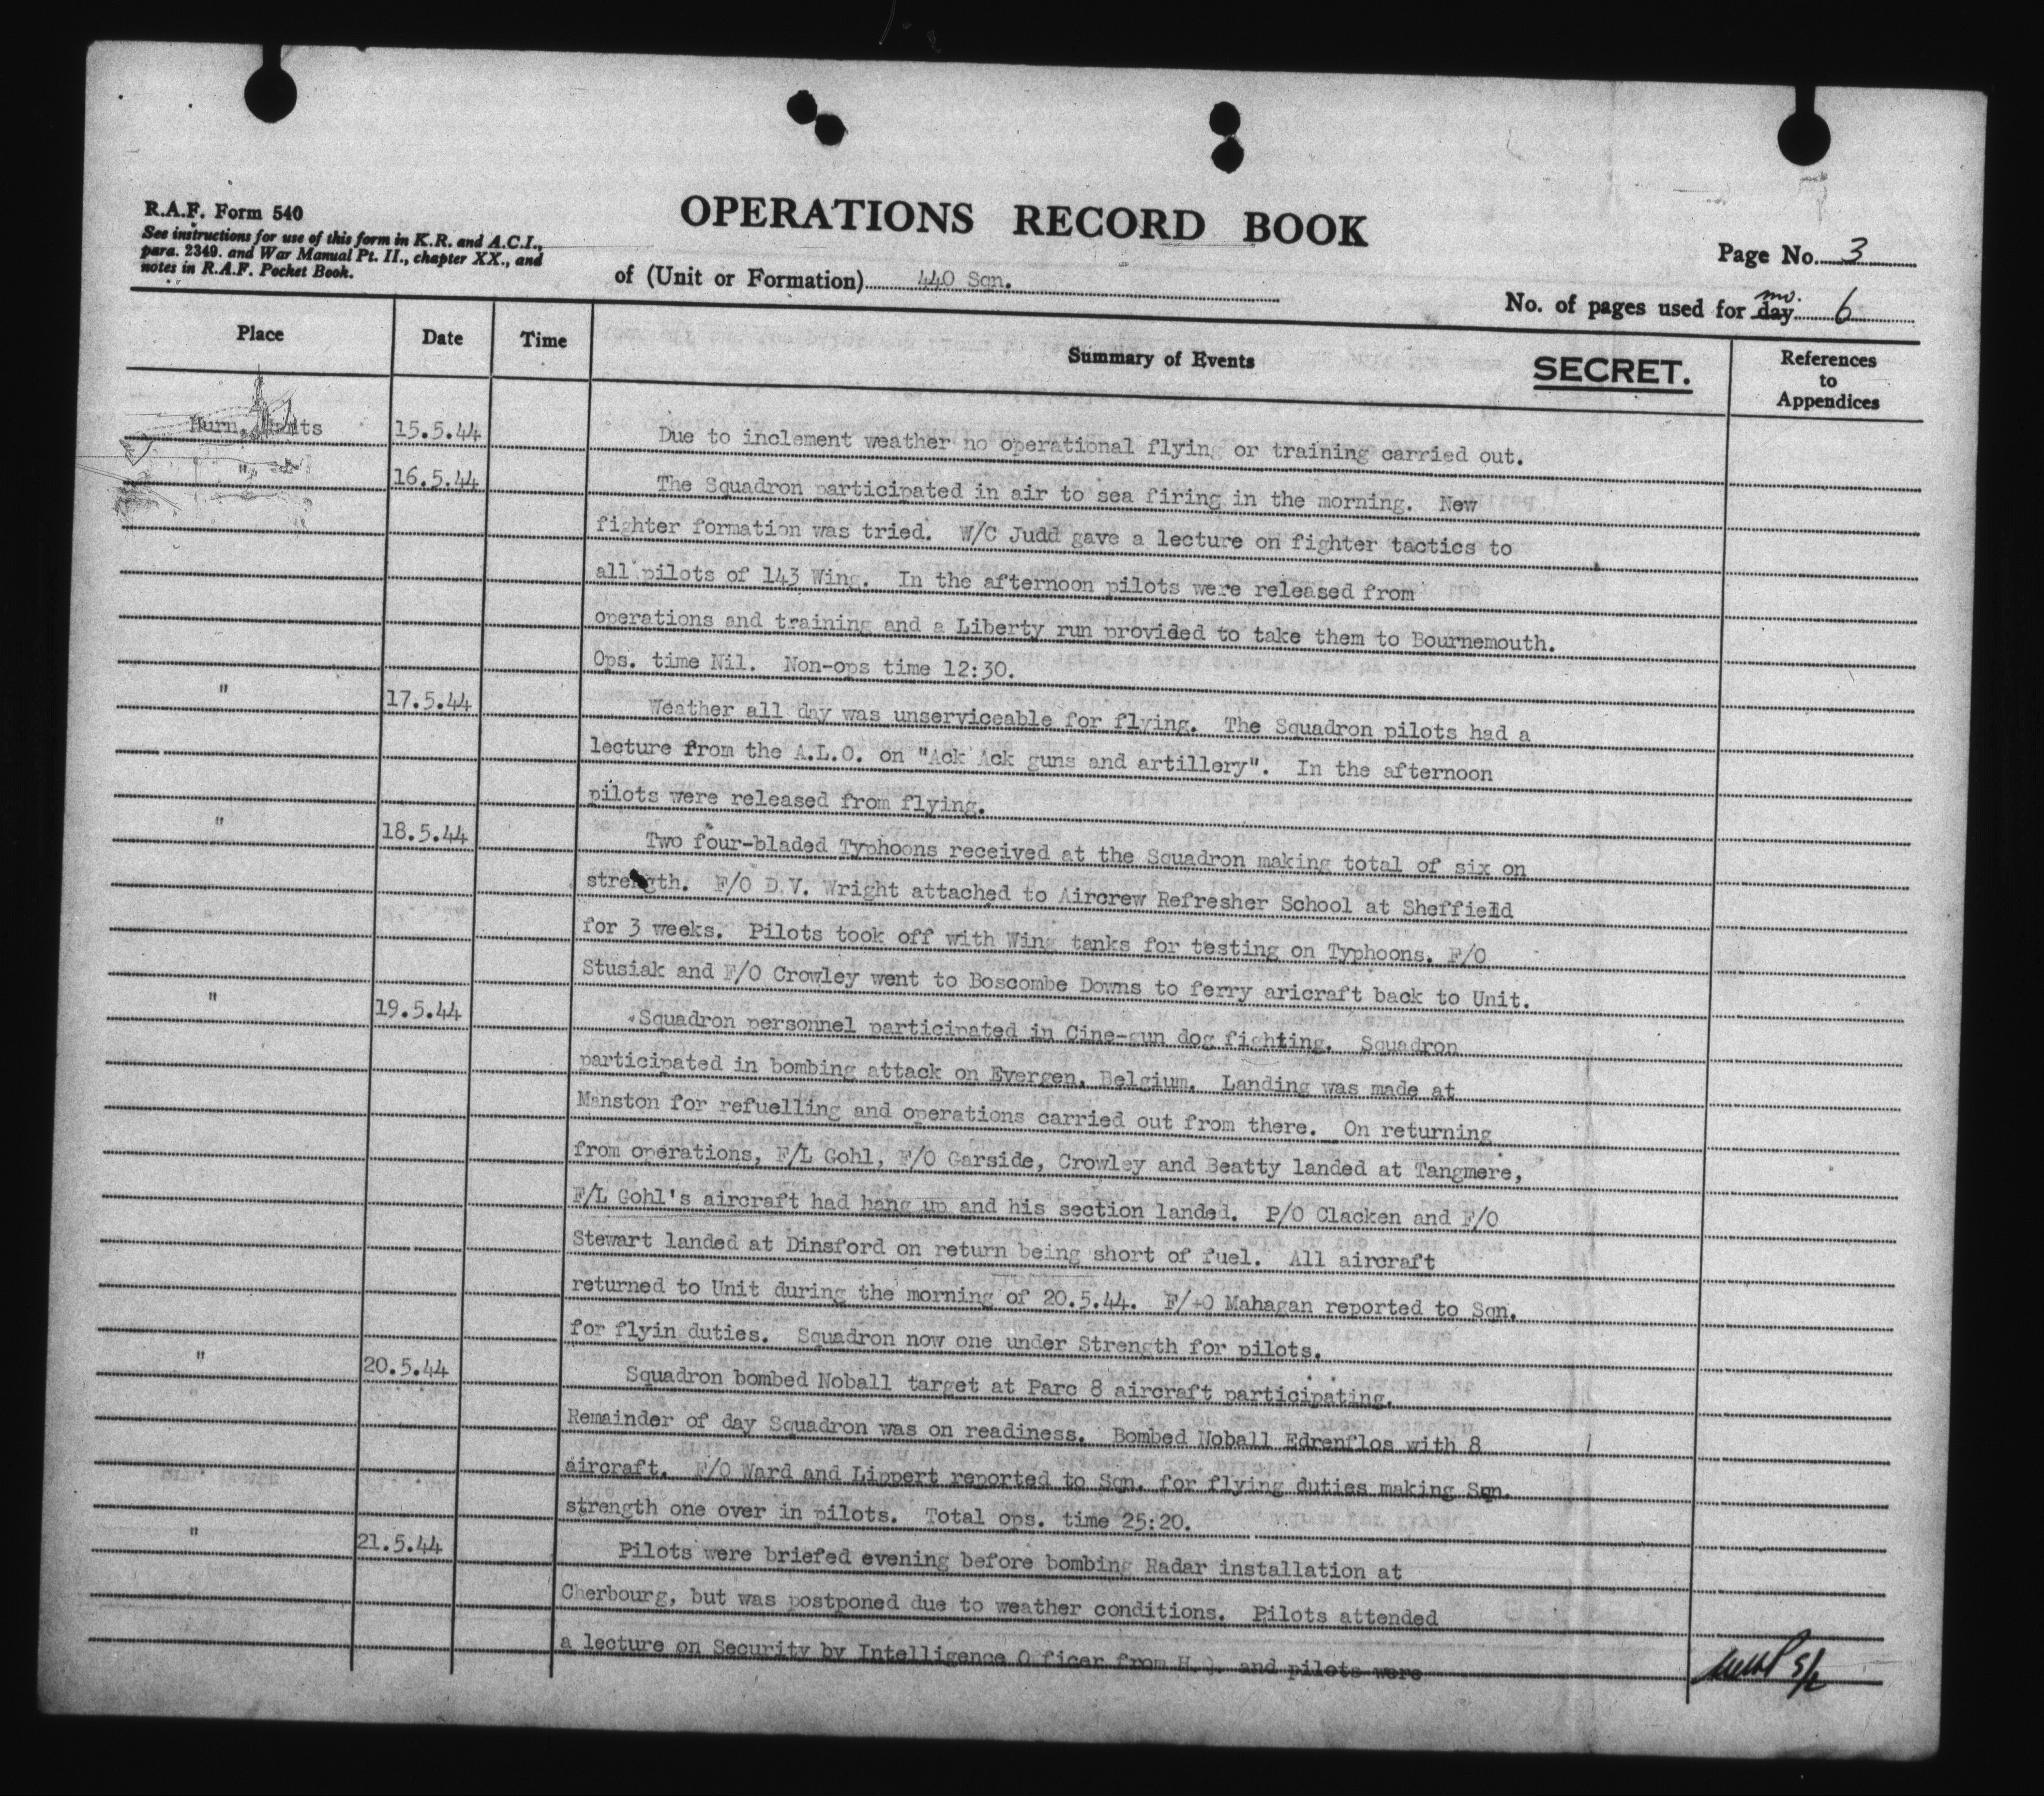 R.A.F. Form 540
See instructions for use of this form in K.R. and A.C.I.,
para. 2349. and War Manual Pt. II., chapter XX., and
notes in R.A.F. Pocket Book.
OPERATIONS RECORD BOOK
of (Unit or Formation) 440 Sqn.
Page No. 3
No. of pages used for day mo. 6
Place Date Time Summary of Events SECRET. References to Appendices
Hurn, Hants 15.5.44 Due to inclement weather no operational flying or training carried out.
" 16.5.44 The Squadron participated in air to sea firing in the morning. New
fighter formation was tried. W/C Judd gave a lecture on fighter tactics to
all pilots of 143 Wing. In the afternoon pilots were released from
operations and training and a Liberty run provided to take them to Bournemouth.
Ops. time Nil. Non-ops time 12:30.
" 17.5.44 Weather all day was unserviceable for flying. The Squadron pilots had a
lecture from the A.L.O. on "Ack Ack guns and artillery". In the afternoon
pilots were released from flying.
" 18.5.44 Two four-bladed Typhoons received at the Squadron making total of six on
strength. F/O D.V. Wright attached to Aircrew Refresher School at Sheffield
for 3 weeks. Pilots took off with Wing tanks for testing on Typhoons. F/O
Stusiak and F/O Crowley went to Boscombe Downs to ferry aricraft back to Unit.
" 19.5.44 Squadron personnel participated in Cine-gun dog fighting. Squadron
participated in bombing attack on Evergen, Belgium. Landing was made at
Manston for refuelling and operations carried out from there. On returning
from operations, F/L Gohl, F/O Garside, Crowley and Beatty landed at Tangmere,
F/L Gohl's aircraft had hang up and his section landed. P/O Clacken and F/O
Stewart landed at Dinsford on return being short of fuel. All aircraft
returned to Unit during the morning of 20.5.44. F/+O Mahagan reported to Sqn.
for flyin duties. Squadron now one under Strength for pilots.
" 20.5.44 Squadron bombed Noball target at Parc 8 aircraft participating.
Remainder of day Squadron was on readiness. Bombed Noball Edrenflos with 8
aircraft. F/O Ward and Lippert reported to Sqn. for flying duties making Sqn.
strength one over in pilots. Total ops. time 25:20.
" 21.5.44 Pilots were briefed evening before bombing Radar installation at
Cherbourg, but was postponed due to weather conditions. Pilots attended
a lecture on Security by Intelligence Officer from H.Q. and pilots were